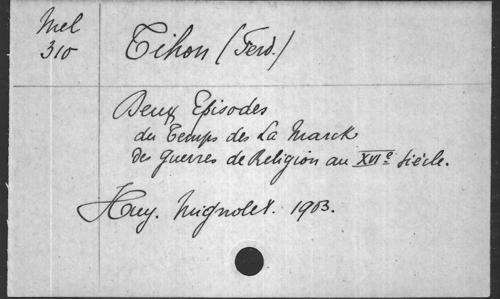 Mel
310
Tihon (Ferd.)
Deux Episodes
du Temps des La Marck
des guerres de Religion au XVIe Siècle.
Huy. Mignolet. 1903.